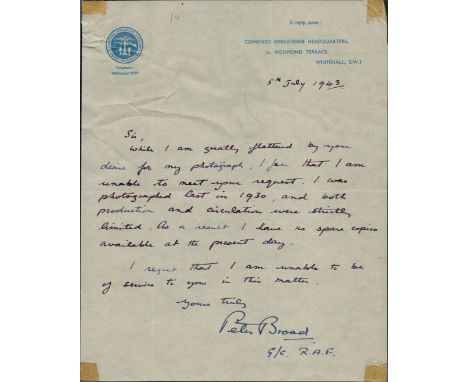 14
In reply, quote :
COMBINED OPERATIONS HEADQUARTERS,
1a RICHMOND TERRACE,
WHITEHALL, S.W.1
Telephone :
5th July 1943.
Sir,
While I am greatly flattered by your
desire for my photograph, I fear that I am
unable to meet your request. I was
photographed last in 1930, and both
production and circulation were strictly
limited. As a result I have no spare copies
available at the present day.
I regret that I am unable to be
of service to you in this matter.
Yours truly
Peter Broad
G/C. R.A.F.